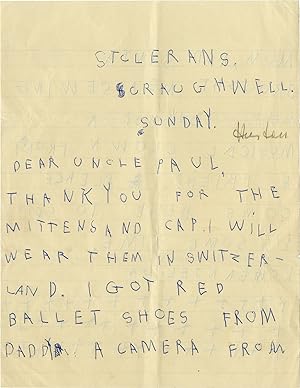 STCLERANS.
CRAUGHWELL.
SUNDAY.
Huston
DEAR UNCLE PAUL,
THANK YOU FOR THE
MITTENS AND CAP. I WILL
WEAR THEM IN SWITZER-
LAND. I GOT RED
BALLET SHOES FROM
DADDY. A CAMERA FROM